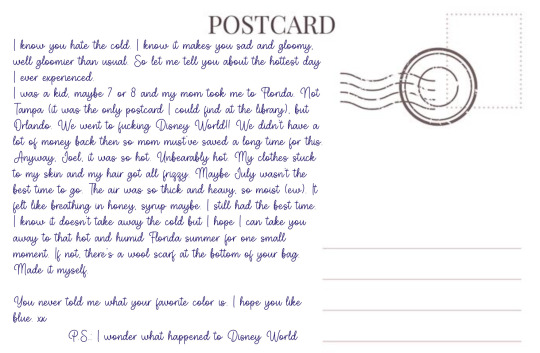 POSTCARD
I know you hate the cold. I know it makes you sad and gloomy,
well gloomier than usual. So let me tell you about the hottest day
I ever experienced.
I was a kid, maybe 7 or 8 and my mom took me to Florida. Not
Tampa (it was the only postcard I could find at the library), but
Orlando. We went to fucking Disney World!! We didn't have a
lot of money back then so mom must've saved a long time for this.
Anyway, Joel, it was so hot. Unbearably hot. My clothes stuck
to my skin and my hair got all frizzy. Maybe July wasn't the
best time to go. The air was so thick and heavy, so moist (ew). It
felt like breathing in honey, syrup maybe. I still had the best time.
I know it doesn't take away the cold but I hope I can take you
away to that hot and humid Florida summer for one small
moment. If not, there's a wool scarf at the bottom of your bag.
Made it myself.
You never told me what your favorite color is. I hope you like
blue. xx
P.S.: I wonder what happened to Disney World